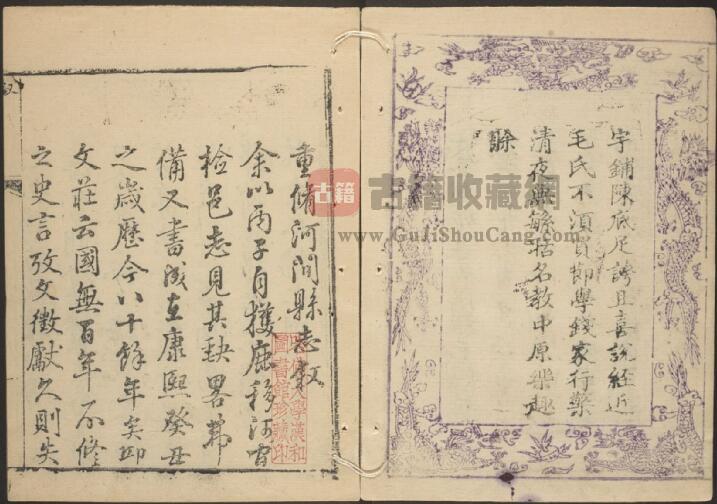 字鋪陳底足誇且喜說經近
毛氏不須員節學錢家行藥
清夜無解括名教中原樂趣
賒
重脩河間縣志敘
余以丙子自獲鹿移河間
檢邑志見其缺略弗
備又書成在康熙癸丑
之歲歷今八十餘年矣邱
文莊云國無百年不修
之史言攷文徵獻久則失
古籍
古籍收藏网
www.GuJiShouCang.com
大學漢和
圖書館珍藏印